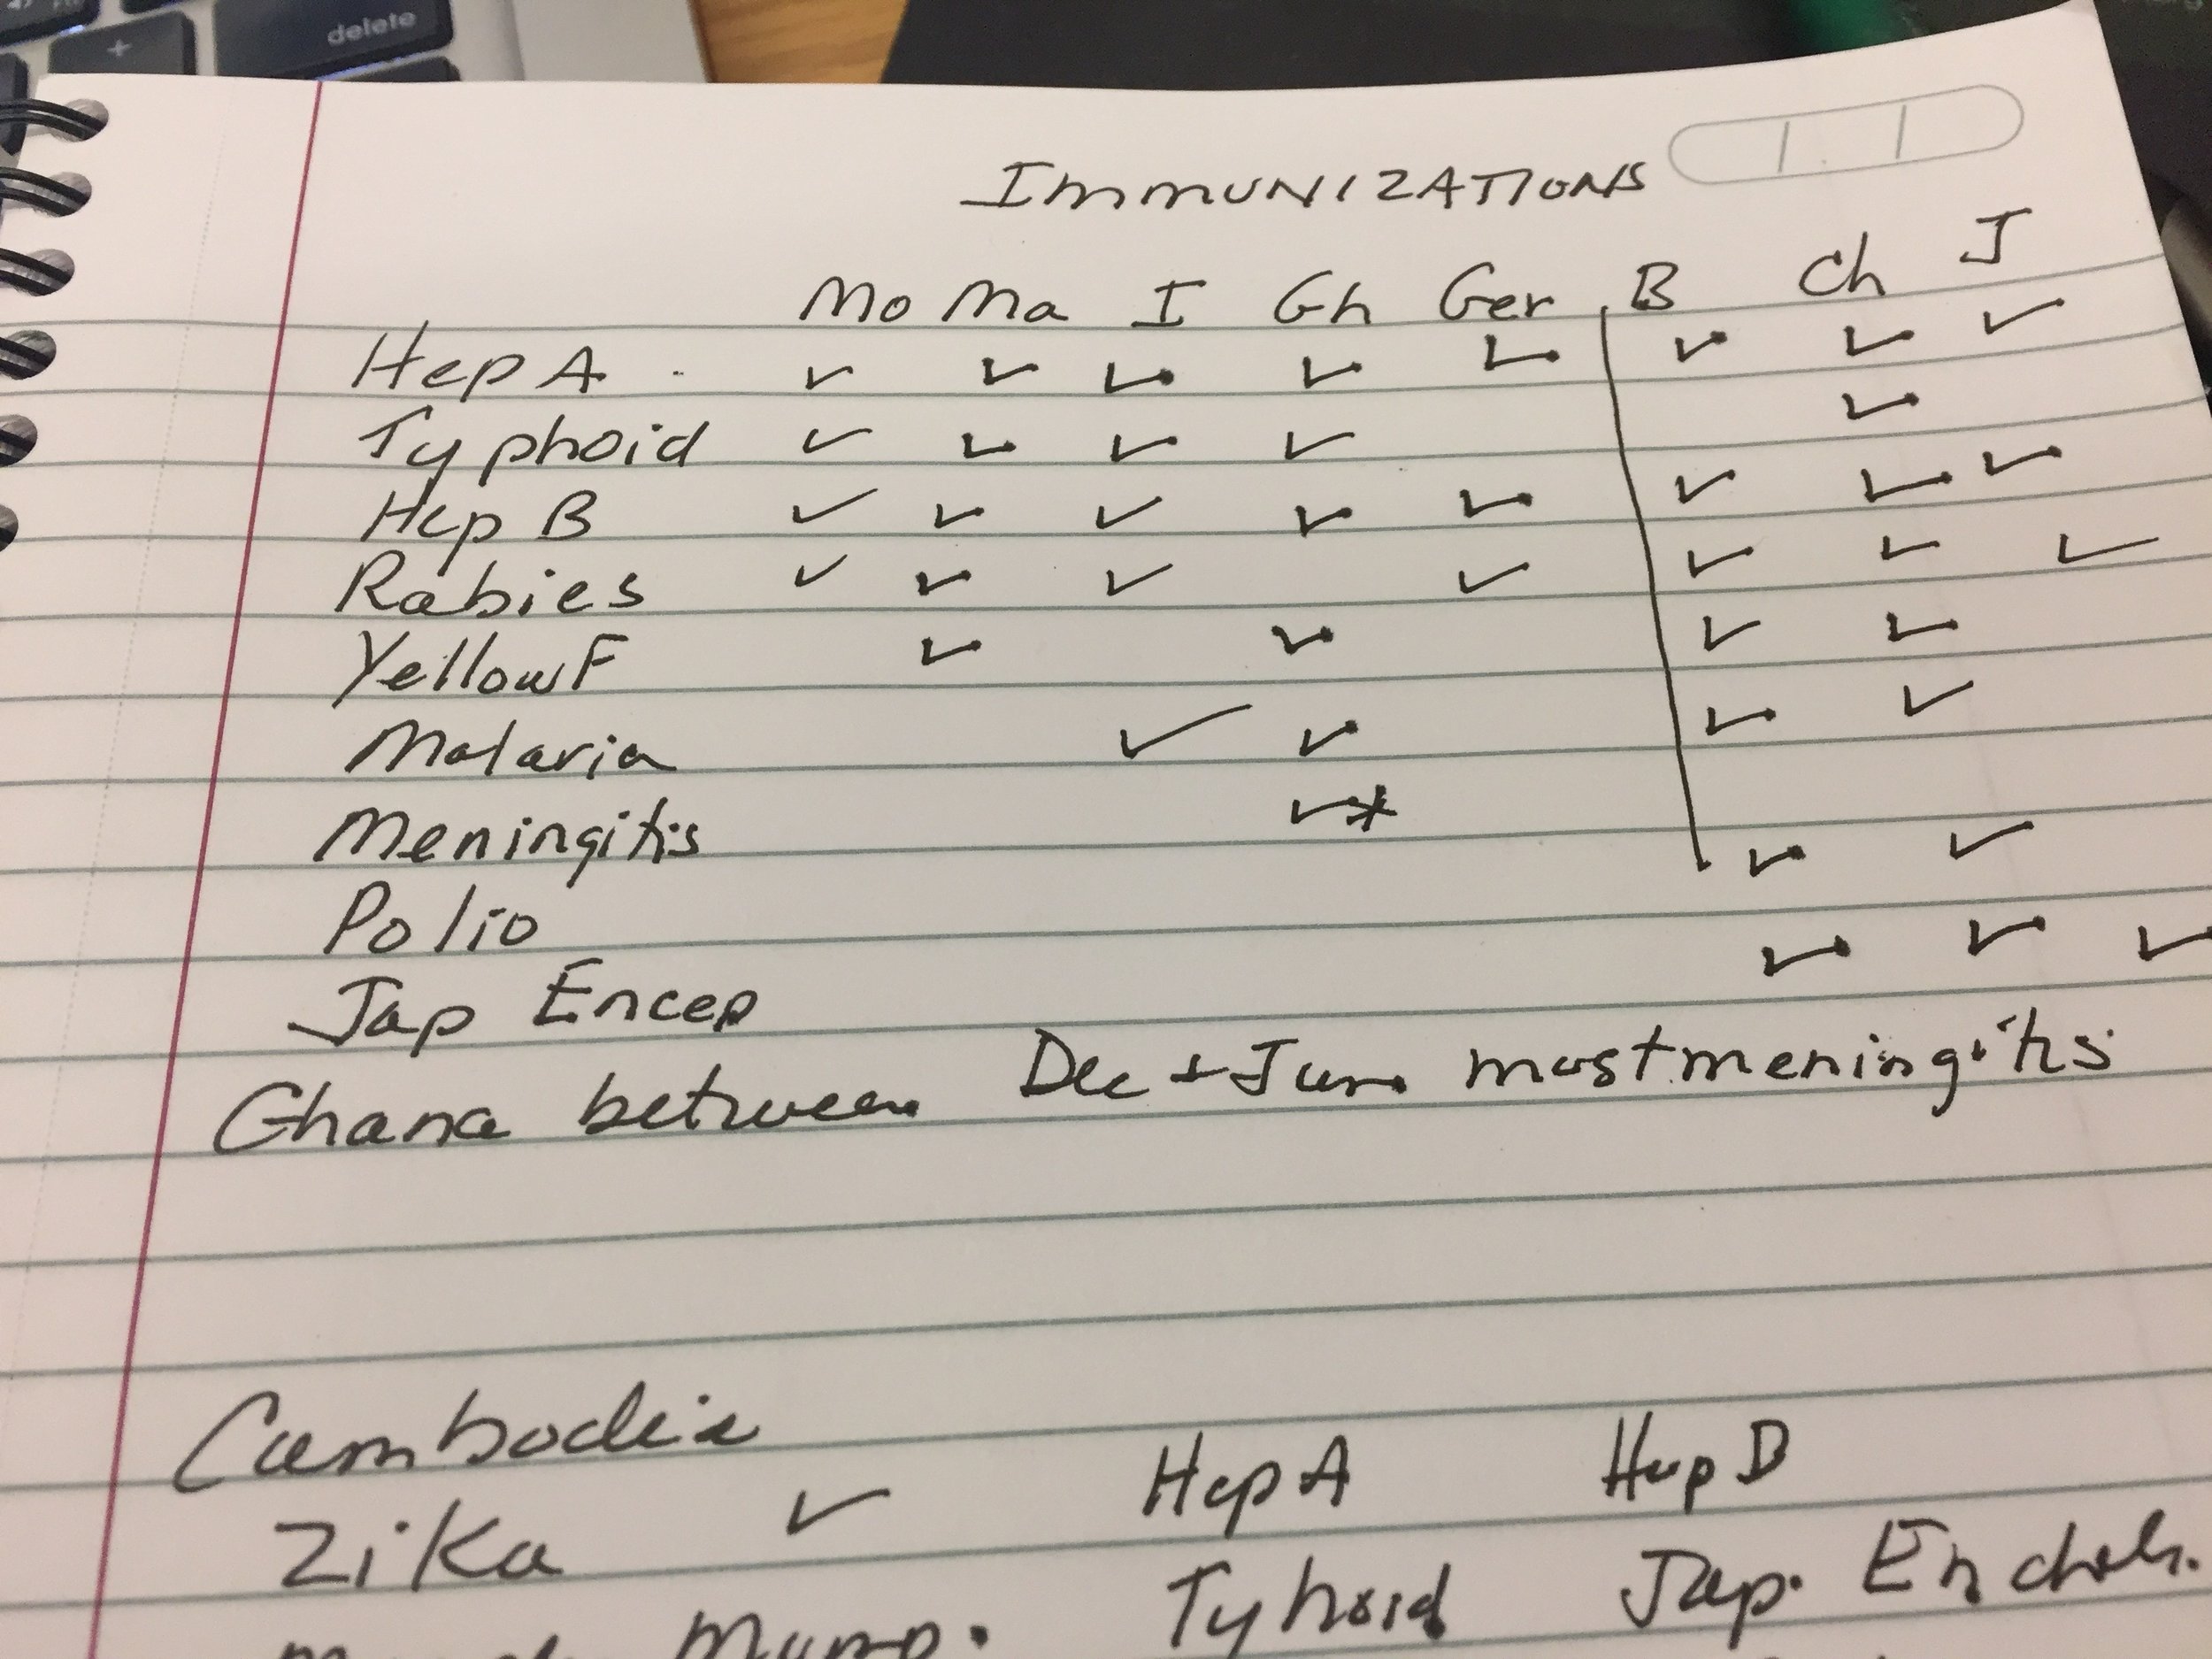 delete
+
IMMUNIZATIONS
Mo Ma I Gh Ger B Ch J
Hep A ✓ ✓ ✓ ✓ ✓ ✓ ✓ ✓
Typhoid ✓ ✓ ✓ ✓ ✓
Hep B ✓ ✓ ✓ ✓ ✓ ✓ ✓ ✓
Rabies ✓ ✓ ✓ ✓ ✓ ✓ ✓
YellowF ✓ ✓ ✓ ✓
Malaria ✓ ✓ ✓ ✓
Meningitis ✓*
Polio ✓ ✓
Jap Encep ✓ ✓ ✓
Ghana between Dec + Jun most meningitis
Cambodia
Zika ✓ Hep A Hep B
Tyhoid Jap.
Mump.